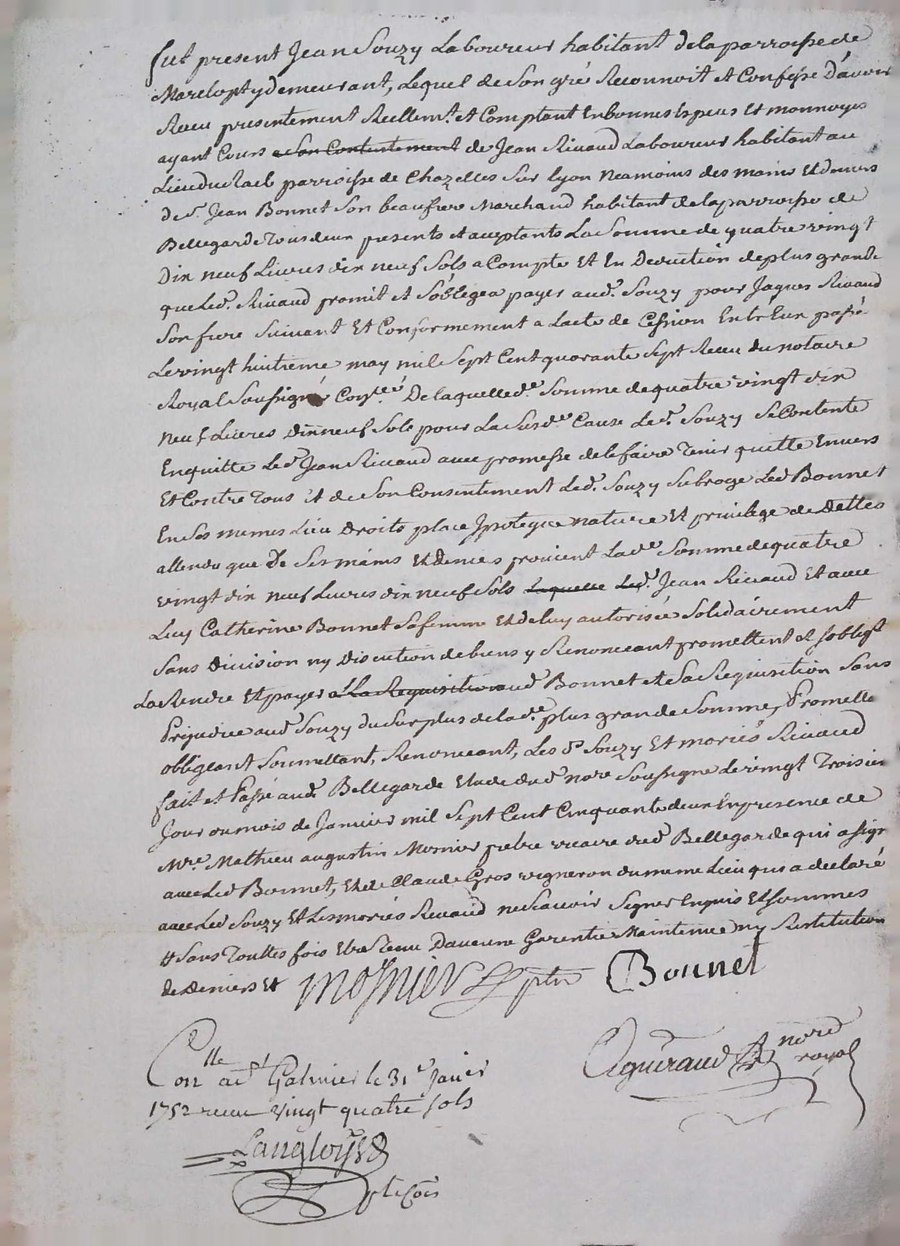 fut present Jean Souzy Laboureur habitant de la parroisse de
Marclopt y demeurant, Lequel de Son gré Reconnoit Et Confesse d'avoir
Receu presentement Reellemt. et Comptant En bonnes Especes Et monnoyes
ayant Cours a Son Contentement de Jean Rivaud Laboureur habitant au
Lieu du parroisse de Chazelles Sur Lyon neamoins des mains Et deniers
de Sr. Jean Bonnet Son beaufrere Marchand habitant de la parroisse de
Bellegarde Tous deux presents et aceptants La Somme de quatre vingt
Dix neuf Livres dix neuf Sols a Compte Et En Deduction de plus grande
que Led. Rivaud promit et S'oblegea payer aud. Souzy pour Jaques Rivaud
Son frere Suivant Et Conformement a Lacte de Cession Entre Eux passé
Le vingt huitieme may mil Sept Cent quarante Sept Receu du notaire
Royal Soussigné De laquelle de. Somme de quatre vingt dix
neuf Livres Dix neuf Sols pour La Susde. Cause Led. Souzy Se Contente
En quitte Led. Jean Rivaud avec promesse de le faire Tenir quitte Envers
Et Contre Tous Et de Son Consentement Led. Souzy Subroge Led Bonnet
En Ses memes Lieu Droits place Ipoteque nature Et privilege de Dettes
attendu que De Ses mains Et deniers provient Lade. Somme de quatre
vingt dix neuf Livres dix neuf Sols Laquelle Led. Jean Rivaud Et avec
Luy Catherine Bonnet Sa femme Et de luy autorisée Solidairement
Sans Division ny Discution de biens y Renonceant promettent et S'obligt
La Rendre Et payer a La Requisition aud Bonnet et a Sa Requisition Sans
Préjudice aud Souzy du Surplus de lade. plus grande Somme, Promette
obligeant Soumettant, Renonceant, Les d. Souzy Et mariés Rivaud
fait et Passé aud. Bellegarde Etude dud nore Soussigne Le vingt Troisiem
Jour du mois de Janvier mil Sept Cent Cinquante deux En presence de
Mre. Mathieu augustin Mosnier prebre vicaire dud Bellegarde qui a sign
avec Led Bonnet, Et de Claude Gros vigneron du meme Lieu qui a declaré
avec Led Souzy Et Les mariés Rivaud ne Scavoir Signer Enquis Et Sommes
# Sans Touttes fois Etre Tenu Daucune Garentie Maintenue ny Restitution
de Deniers Et Mosnier ptre Bonnet
Aguiraud nore
royal
Conlle a St Galmier le 31e Janvier
1752 receu vingt quatre sols
Langlois